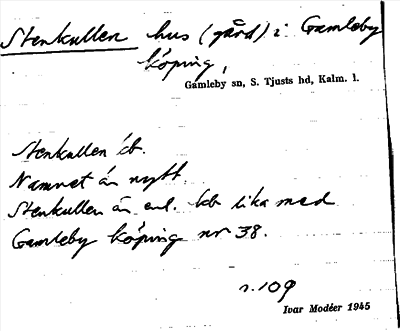 Stenkullen hus (gård) i Gamleby
köping,
Gamleby sn, S. Tjusts hd, Kalm. l.
Stenkullen kb.
Namnet än nytt.
Stenkullen än enl. kb lika med
Gamleby köping nr 38.
s. 109
Ivar Modéer 1945